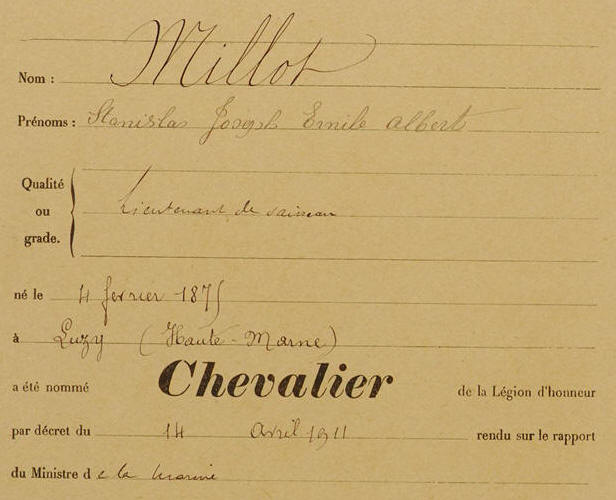 Nom : Millot
Prénoms : Stanislas Joseph Emile Albert
Qualité
ou
grade. Lieutenant de vaisseau
né le 4 fevrier 1875
à Luzy (Haute-Marne)
a été nommé Chevalier de la Légion d'honneur
par décret du 14 Avril 1911 rendu sur le rapport
du Ministre de la marine